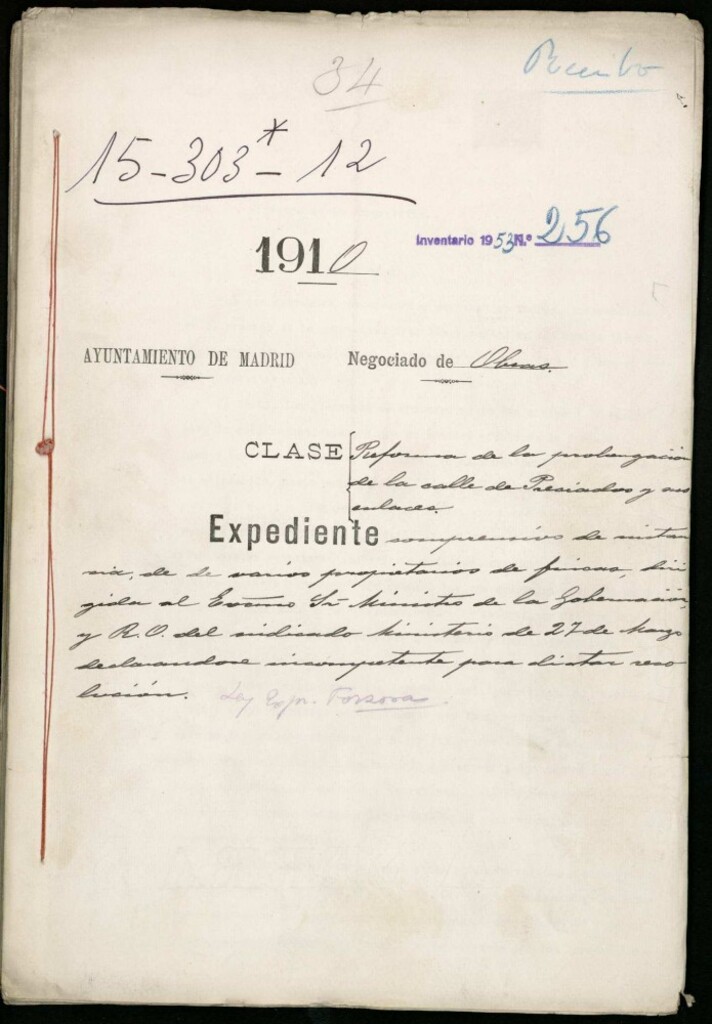 34
Recibo
15-303*-12
1910
Inventario 1953 N.º 256
AYUNTAMIENTO DE MADRID Negociado de Obras.
CLASE Reforma de la prolongación
de la calle de Preciados y sus
enlaces.
Expediente comprensivo de instan
cia, de varios propietarios de fincas, diri
gida al Excmo Sr Ministro de la Gobernación,
y R.O. del indicado Ministerio de 27 de Marzo
declarandose incompetente para dictar reso
lución. Ley Expr. Forzosa.